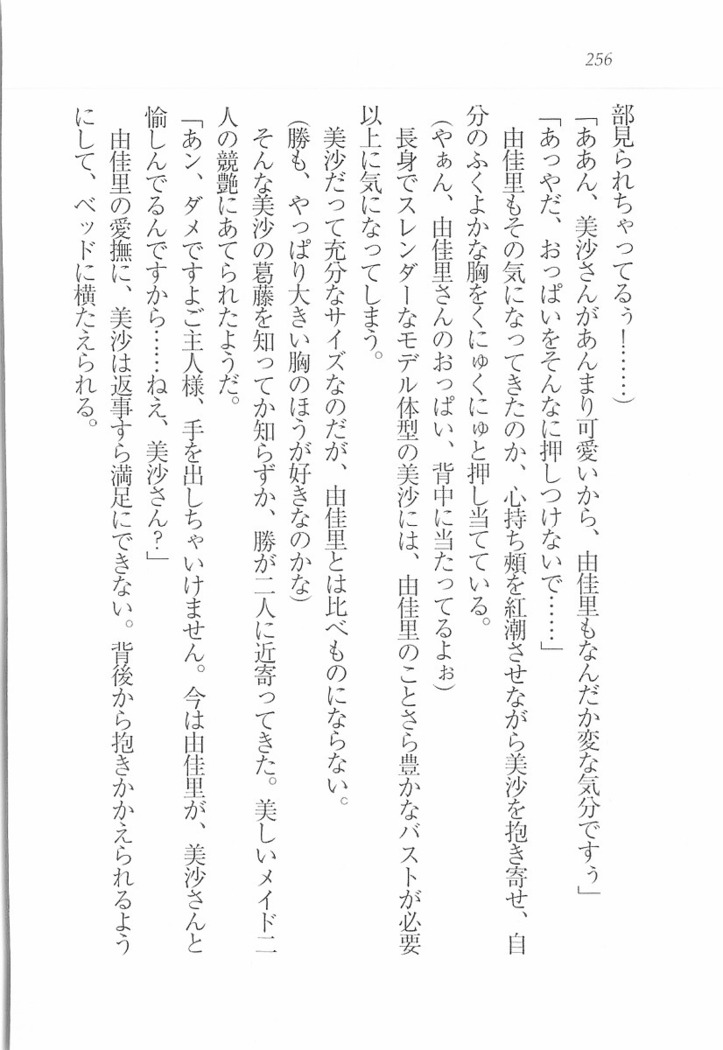 256
部見られちゃってるぅ！……）
「ああん、美沙さんがあんまり可愛いから、由佳里もなんだか変な気分ですぅ」
「あっやだ、おっぱいをそんなに押しつけないで……」
由佳里もその気になってきたのか、心持ち頬を紅潮させながら美沙を抱き寄せ、自
分のふくよかな胸をくにゅくにゅと押し当てている。
（やぁん、由佳里さんのおっぱい、背中に当たってるよぉ）
長身でスレンダーなモデル体型の美沙には、由佳里のことさら豊かなバストが必要
以上に気になってしまう。
美沙だって充分なサイズなのだが、由佳里とは比べものにならない。
（勝も、やっぱり大きい胸のほうが好きなのかな）
そんな美沙の葛藤を知ってか知らずか、勝が二人に近寄ってきた。美しいメイド二
人の競艶にあてられたようだ。
「あン、ダメですよご主人様、手を出しちゃいけません。今は由佳里が、美沙さんと
愉しんでるんですから……ねえ、美沙さん？」
由佳里の愛撫に、美沙は返事すら満足にできない。背後から抱きかかえられるよう
にして、ベッドに横たえられる。